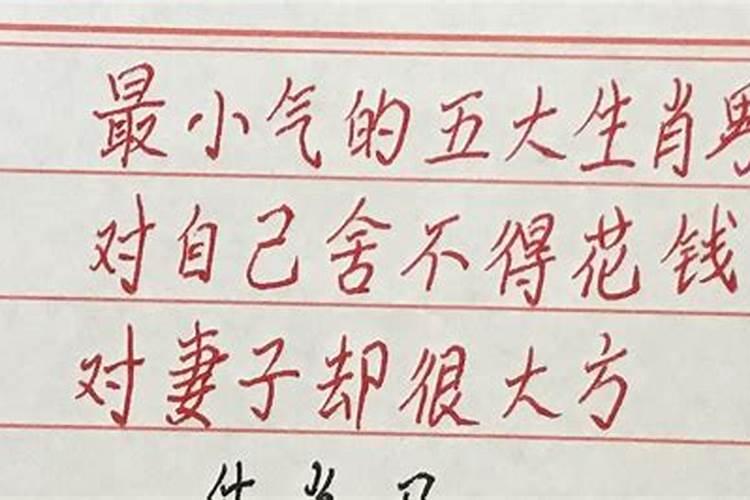 最小气的五大生肖男
对自己舍不得花钱
对妻子却很大方